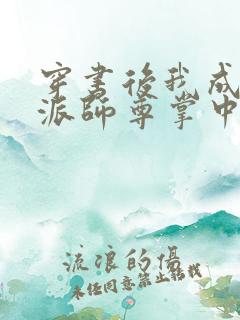 穿書後我成
派師尊掌中
流浪的傷
未经同意禁止转载